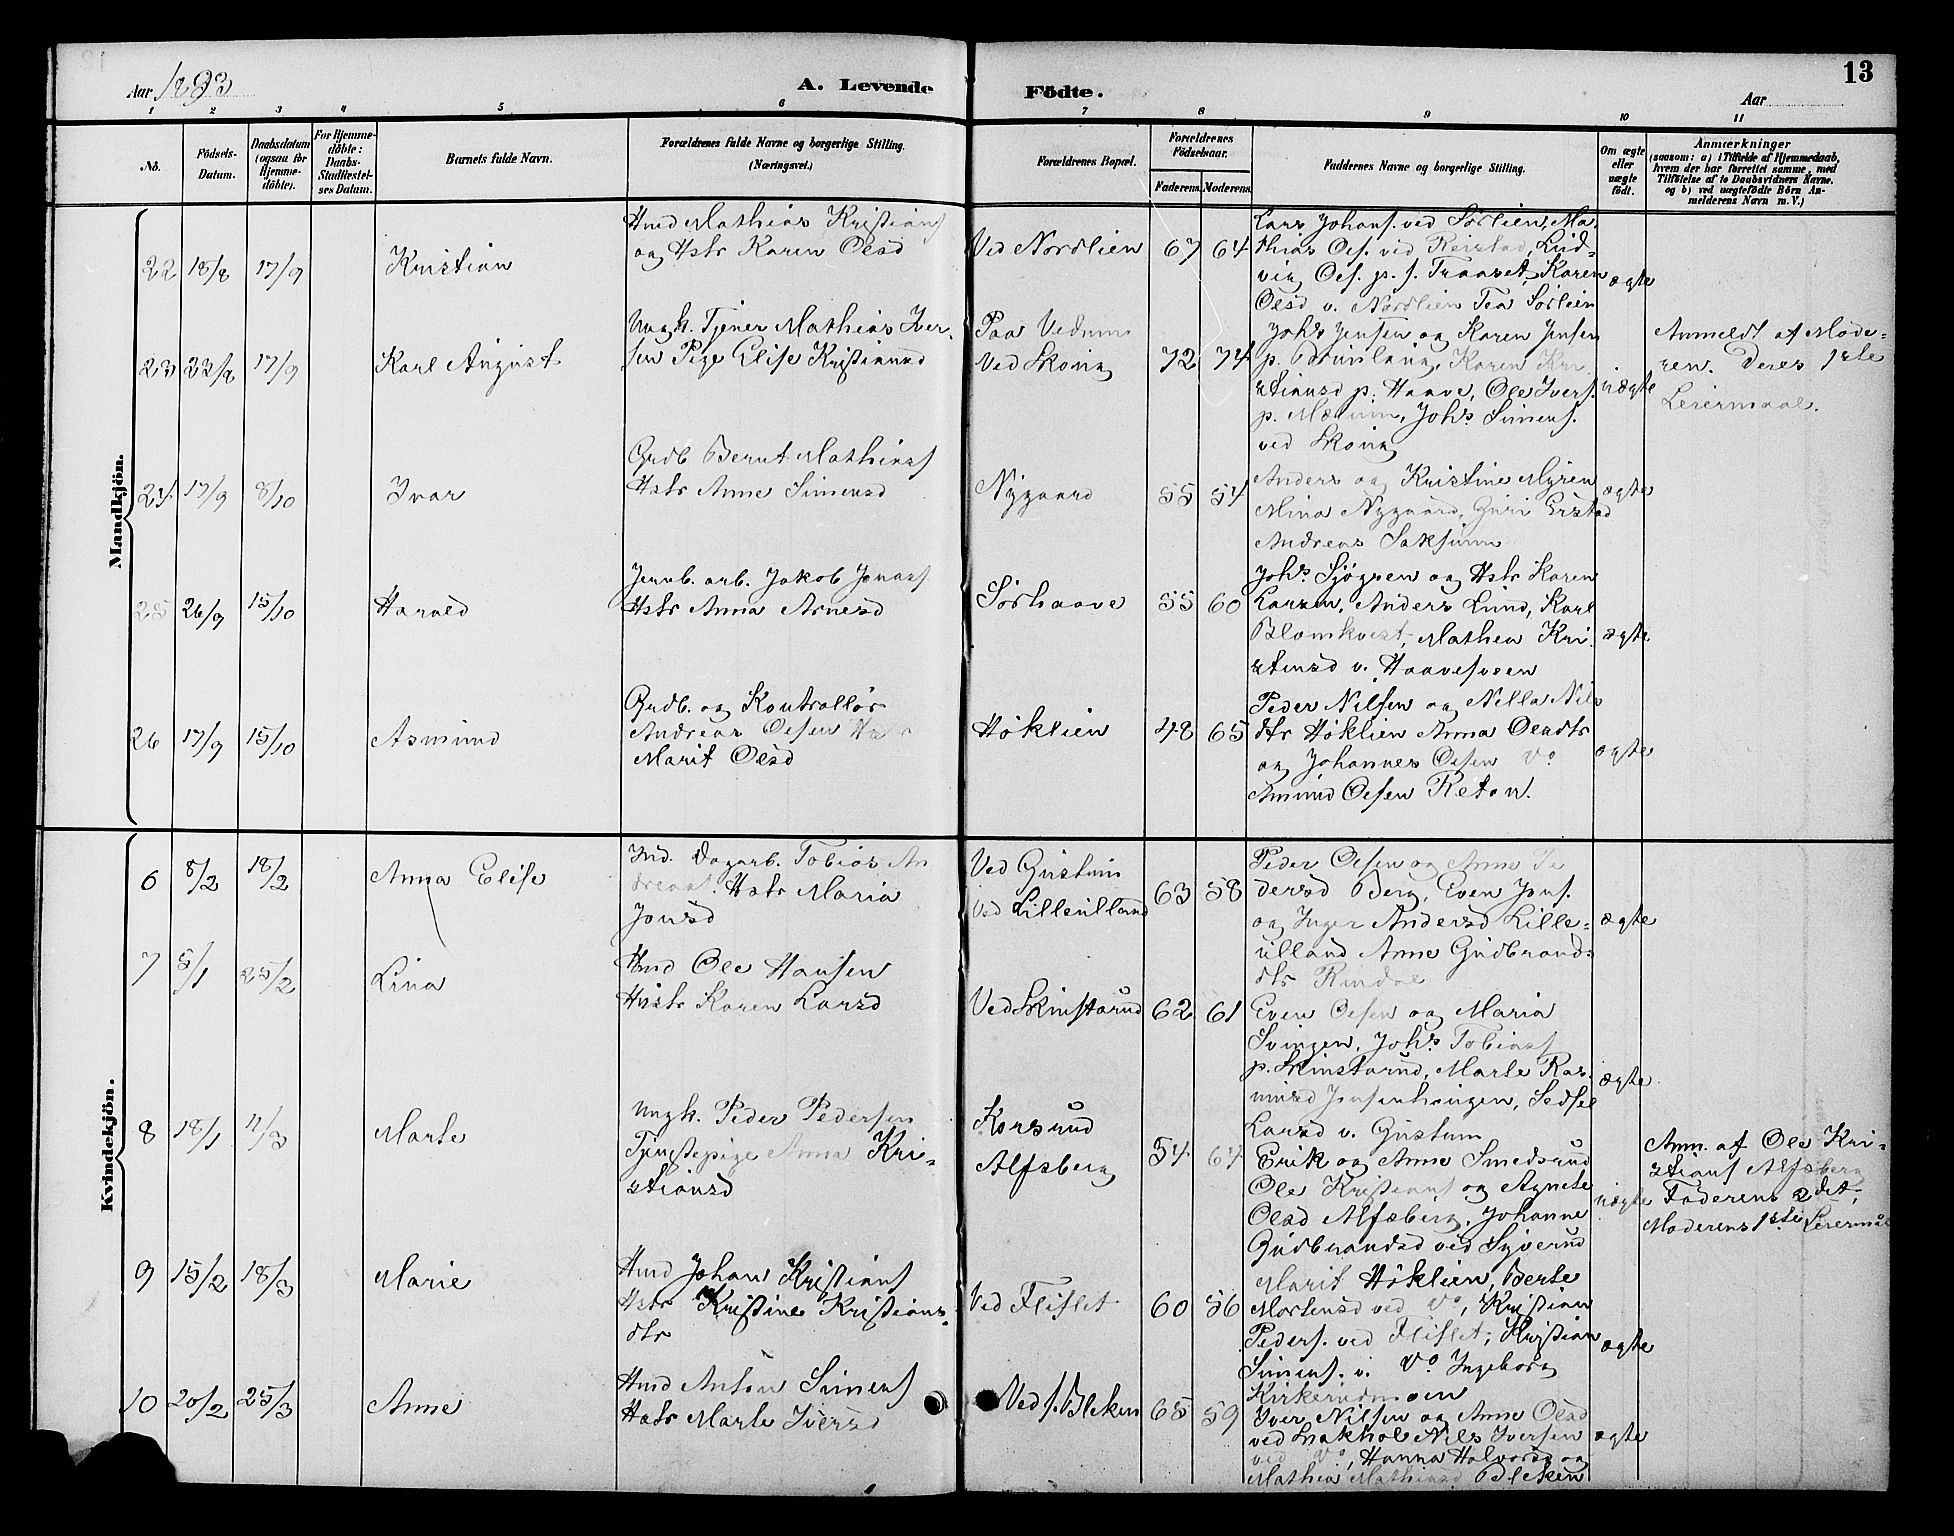 Aar 1893
A. Levende Födte.
Aar
13
1 2 3 4 5 6 7 8 9 10 11
No.
Födsels-Datum.
Daabsdatum (ogsaa for Hjemme-döbte).
For Hjemme-döbte: Daabs-Stadfæstel-ses Datum.
Barnets fulde Navn.
Forældrenes fulde Navne og borgerlige Stilling. (Næringsvei.)
Forældrenes Bopæl.
Forældrenes Födselsaar.
Faderens. Moderens.
Faddernes Navne og borgerlige Stilling.
Om ægte eller uægte födt.
Anmærkninger
(saasom: a) i Tilfælde af Hjemmedaab,
hvem der har forrettet samme, med
Tilföielse af to Daabsvidners Navne,
og b) ved uægtefödte Börn An-
melderens Navn m. V.)
Mandkjön.
22 18/8 17/9 Kristian
Hmd Mathias Kristians
og Hstr Karen Olsd
Ved Nordlien 67 64
Lars Johans. ved Sørlien, Ma-
thias Ols. ved Reistad, Lud-
vig Ols. p. s. Traaset, Karen
Olsd v. Nordlien Tea Sørlien
ægte
23 22/8 17/9 Karl August
Ungk. Tjener Mathias Iver-
sen Pige Elise Kristiansd
Paa Vedum
Ved Skoug 72 74
Johs Jensen og Karen Jensen
p. Bruvlang, Karen Kri-
stiansd p. Haave, Ole Ivers.
p. Mælum, Johs Simens.
ved Skoug
uægte
Anmeldt af Mode-
ren. Deres 1ste
Leiermaal.
24 17/9 8/10 Ivar
Grdb Bernt Mathias
Hstr Anne Simensd
Nygaard 55 54
Anders og Kristine Myren
Mina Nygaard, Guri Erstad
Andreas Saksum
ægte
25 26/9 15/10 Harald
Jernb. arb. Jakob Jonass
Hstr Anna Arnesd
Sørhaave 55 60
Johs Sjögren og Hstr Karen
Larsen, Anders Lund, Karl
Blomkvist, Mathea Kri-
stensd v. Haavesveen
ægte
26 17/9 15/10 Asmund
Grdb. og Kontrollør
Andreas Olsen Hstr
Marit Olsd
Høklien 48 65
Peder Nilsen og Nilla Nils
dtr Høklien Anna Olsdtr
og Johannes Olsen Do
Amund Olsen Reton.
ægte
Kvindekjön.
6 8/2 18/2 Anna Elise
Ind. Dagarb. Tobias An
dreas. Hstr Maria
Jonsd
Ved Gustum
Ved Lilleulland 63 58
Peder Olsen og Anne Pe
dersd Berg, Even Jons.
og Inger Andersd Lille-
ulland Anne Gudbrands-
dtr Rindal
ægte
7 5/1 25/2 Lina
Hmd Ole Hansen
Hustr Karen Larsd
Ved Skinstarud 62 61
Even Olsen og Maria
Svingen, Johs Tobiass
p. Skinstarud, Marte Ras-
musd Jensenhaugen, Sedsel
Larsd v. Gustum
ægte
8 18/1 11/3 Marte
Ungk. Peder Pedersen
Tjenstepige Anna Kri-
stiansd
Korsrud
Alfsberg 54 64
Erik og Anne Smedsrud
Ole Kristians og Agnete
Olsd Alfsberg, Johanne
Gudbrandsd ved Syverud
uægte
Anm. af Ole Kri-
stians Alfsberg
Faderens 2det,
Moderens 1ste Leiermål
9 15/2 18/3 Marie
Hmd Johan Kristians
Hstr Kristine Kristians-
dtr
Ved Fliflet 60 56
Marit Høklien, Berte
Mortensd ved Do, Kristian
Peders. ved Fliflet, Kristian
Simens. v. Do Ingeborg
Kirkerudmoen
ægte
10 20/2 25/3 Anne
Hmd Anton Simens
Hstr Marte Iversd
Ved s. Bleken 65 59
Iver Nilsen og Anne Olsd
ved Nils Iversen
ved Do, Hanna Halvorsd og
Mathea Mathiasd Bleken
ægte